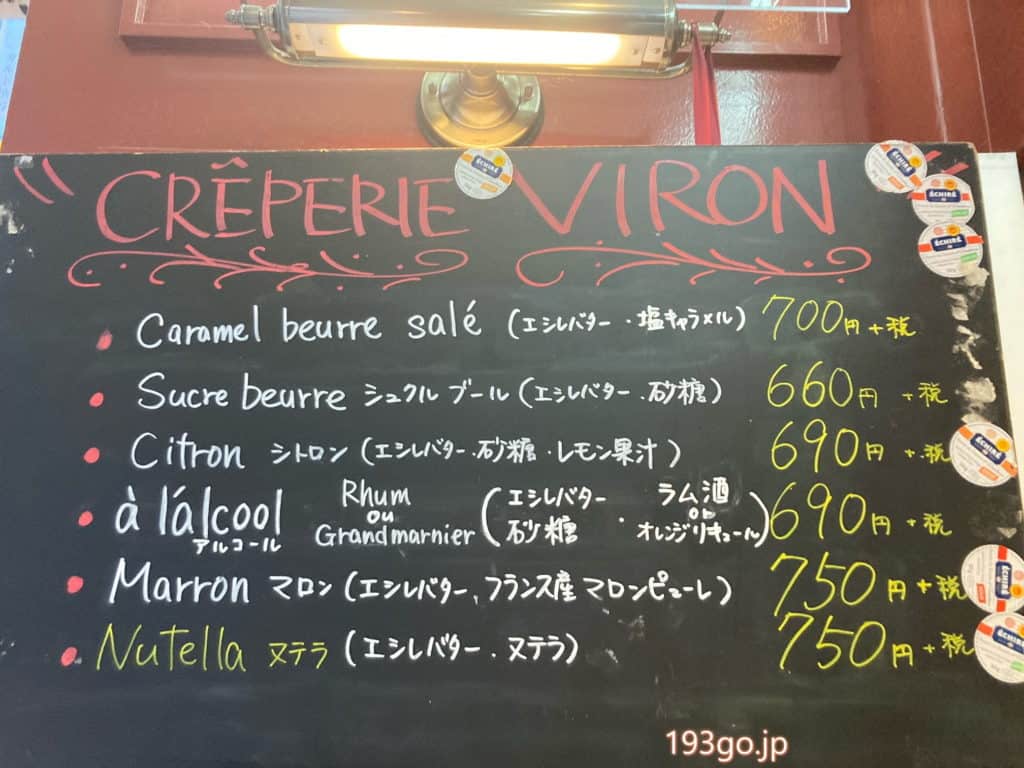 CRÊPERIE VIRON
ÉCHIRÉ
ÉCHIRÉ
ÉCHIRÉ
ÉCHIRÉ
Caramel beurre salé (エシレバター・塩キャラメル) 700円+税
Sucre beurre シュクル ブール (エシレバター・砂糖) 660円 +税
Citron シトロン (エシレバター・砂糖・レモン果汁) 690円 +税
ÉCHIRÉ
à lálcool アルコール Rhum ou Grandmarnier (エシレバター 砂糖 ・ ラム酒 or オレンジリキュール) 690円 +税
Marron マロン (エシレバター、フランス産マロンピューレ) 750円 +税
ÉCHIRÉ
Nutella ヌテラ (エシレバター・ヌテラ) 750円 +税
ÉCHIRÉ
193go.jp